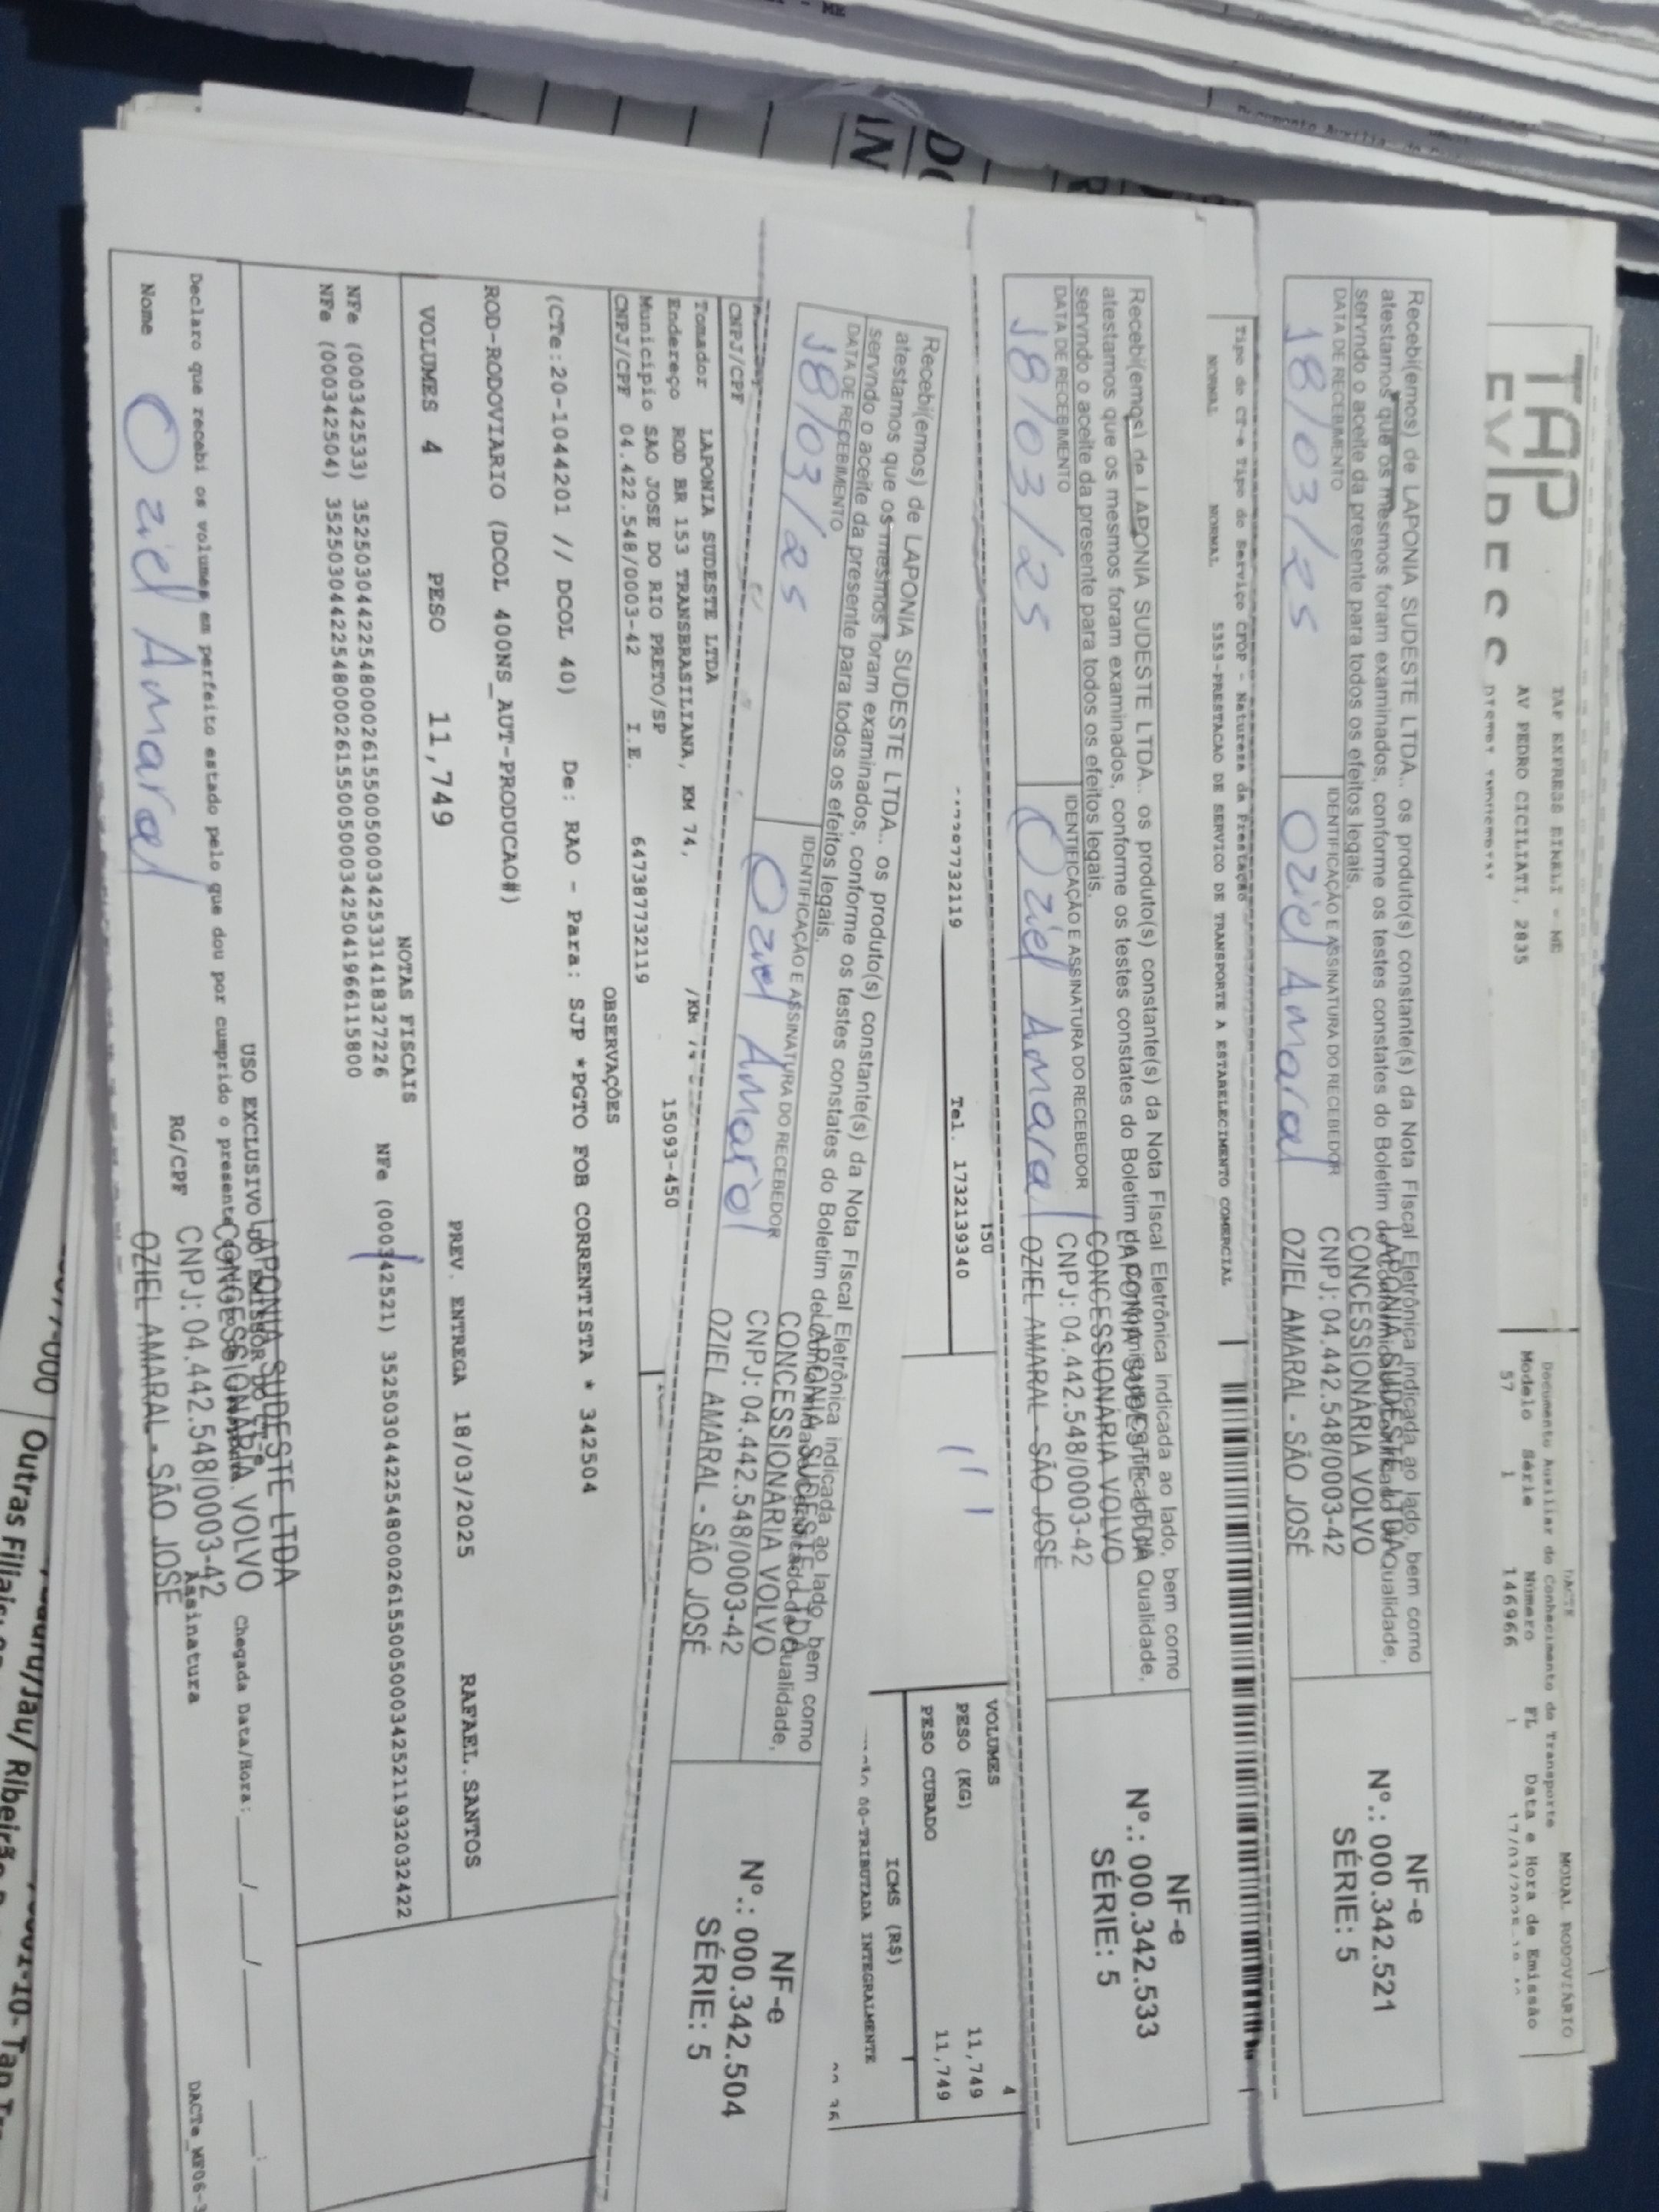 TAP
EXPRESS
TAP EXPRESS EIRELI - ME
AV PEDRO CICILIATI, 2835
DACTE
Documento Auxiliar do Conhecimento de Transporte
MODAL RODOVIÁRIO
Modelo Série Número FL Data e Hora de Emissão
57 1 146966 1
Recebi(emos) de LAPONIA SUDESTE LTDA.. os produto(s) constante(s) da Nota FIscal Eletrônica indicada ao lado, bem como
atestamos que os mesmos foram examinados, conforme os testes constates do Boletim de Qualidade,
servndo o aceite da presente para todos os efeitos legais.
DATA DE RECEBIMENTO
18/03/25
IDENTIFICAÇÃO E ASSINATURA DO RECEBEDOR
Oziel Amaral
LAPONIA SUDESTE LTDA
CONCESSIONÁRIA VOLVO
CNPJ: 04.442.548/0003-42
OZIEL AMARAL - SÃO JOSÉ
NF-e
Nº.: 000.342.521
SÉRIE: 5
Tipo do CT-e Tipo do Serviço CFOP - Natureza da Prestação
NORMAL NORMAL 5353-PRESTACAO DE SERVICO DE TRANSPORTE A ESTABELECIMENTO COMERCIAL
Recebi(emos) de LAPONIA SUDESTE LTDA.. os produto(s) constante(s) da Nota FIscal Eletrônica indicada ao lado, bem como
atestamos que os mesmos foram examinados, conforme os testes constates do Boletim de Qualidade,
servndo o aceite da presente para todos os efeitos legais.
DATA DE RECEBIMENTO
18/03/25
IDENTIFICAÇÃO E ASSINATURA DO RECEBEDOR
Oziel Amaral
LAPONIA SUDESTE LTDA
CONCESSIONÁRIA VOLVO
CNPJ: 04.442.548/0003-42
OZIEL AMARAL - SÃO JOSÉ
NF-e
Nº.: 000.342.533
SÉRIE: 5
Tel. 1732139340
VOLUMES 4
PESO (KG) 11,749
PESO CUBADO 11,749
ICMS (R$)
00-TRIBUTADA INTEGRALMENTE
Recebi(emos) de LAPONIA SUDESTE LTDA.. os produto(s) constante(s) da Nota FIscal Eletrônica indicada ao lado, bem como
atestamos que os mesmos foram examinados, conforme os testes constates do Boletim de Qualidade,
servndo o aceite da presente para todos os efeitos legais.
DATA DE RECEBIMENTO
18/03/25
IDENTIFICAÇÃO E ASSINATURA DO RECEBEDOR
Oziel Amaral
LAPONIA SUDESTE LTDA
CONCESSIONÁRIA VOLVO
CNPJ: 04.442.548/0003-42
OZIEL AMARAL - SÃO JOSÉ
NF-e
Nº.: 000.342.504
SÉRIE: 5
CNPJ/CPF
Tomador LAPONIA SUDESTE LTDA
Endereço ROD BR 153 TRANSBRASILIANA, KM 74,
Municipio SAO JOSE DO RIO PRETO/SP 15093-450
CNPJ/CPF 04.422.548/0003-42 I.E. 647387732119
OBSERVAÇÕES
(CTe:20-1044201 // DCOL 40) De: RAO - Para: SJP *PGTO FOB CORRENTISTA * 342504
ROD-RODOVIARIO (DCOL 400NS_AUT-PRODUCAO#)
VOLUMES 4 PESO 11,749 PREV. ENTREGA 18/03/2025 RAFAEL.SANTOS
NOTAS FISCAIS
NFe (000342533) 35250304422548000261550050003425331418327226 NFe (000342521) 35250304422548000261550050003425211932032422
NFe (000342504) 35250304422548000261550050003425041966115800
USO EXCLUSIVO DO EMISSOR DO CT-e
Declaro que recebi os volumes em perfeito estado pelo que dou por cumprido o presente
Chegada Data/Hora: ___/___/___ ___:___
Nome Oziel Amaral
RG/CPF
Assinatura
LAPONIA SUDESTE LTDA
CONCESSIONÁRIA VOLVO
CNPJ: 04.442.548/0003-42
OZIEL AMARAL - SÃO JOSÉ